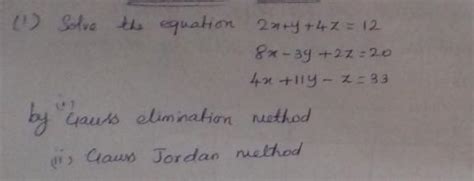 (1) Solve the equation 2x+y+4z=12
8x-3y+2z=20
4x+11y-z=33
by (i) Gauss elimination method
(ii) Gauss Jordan method